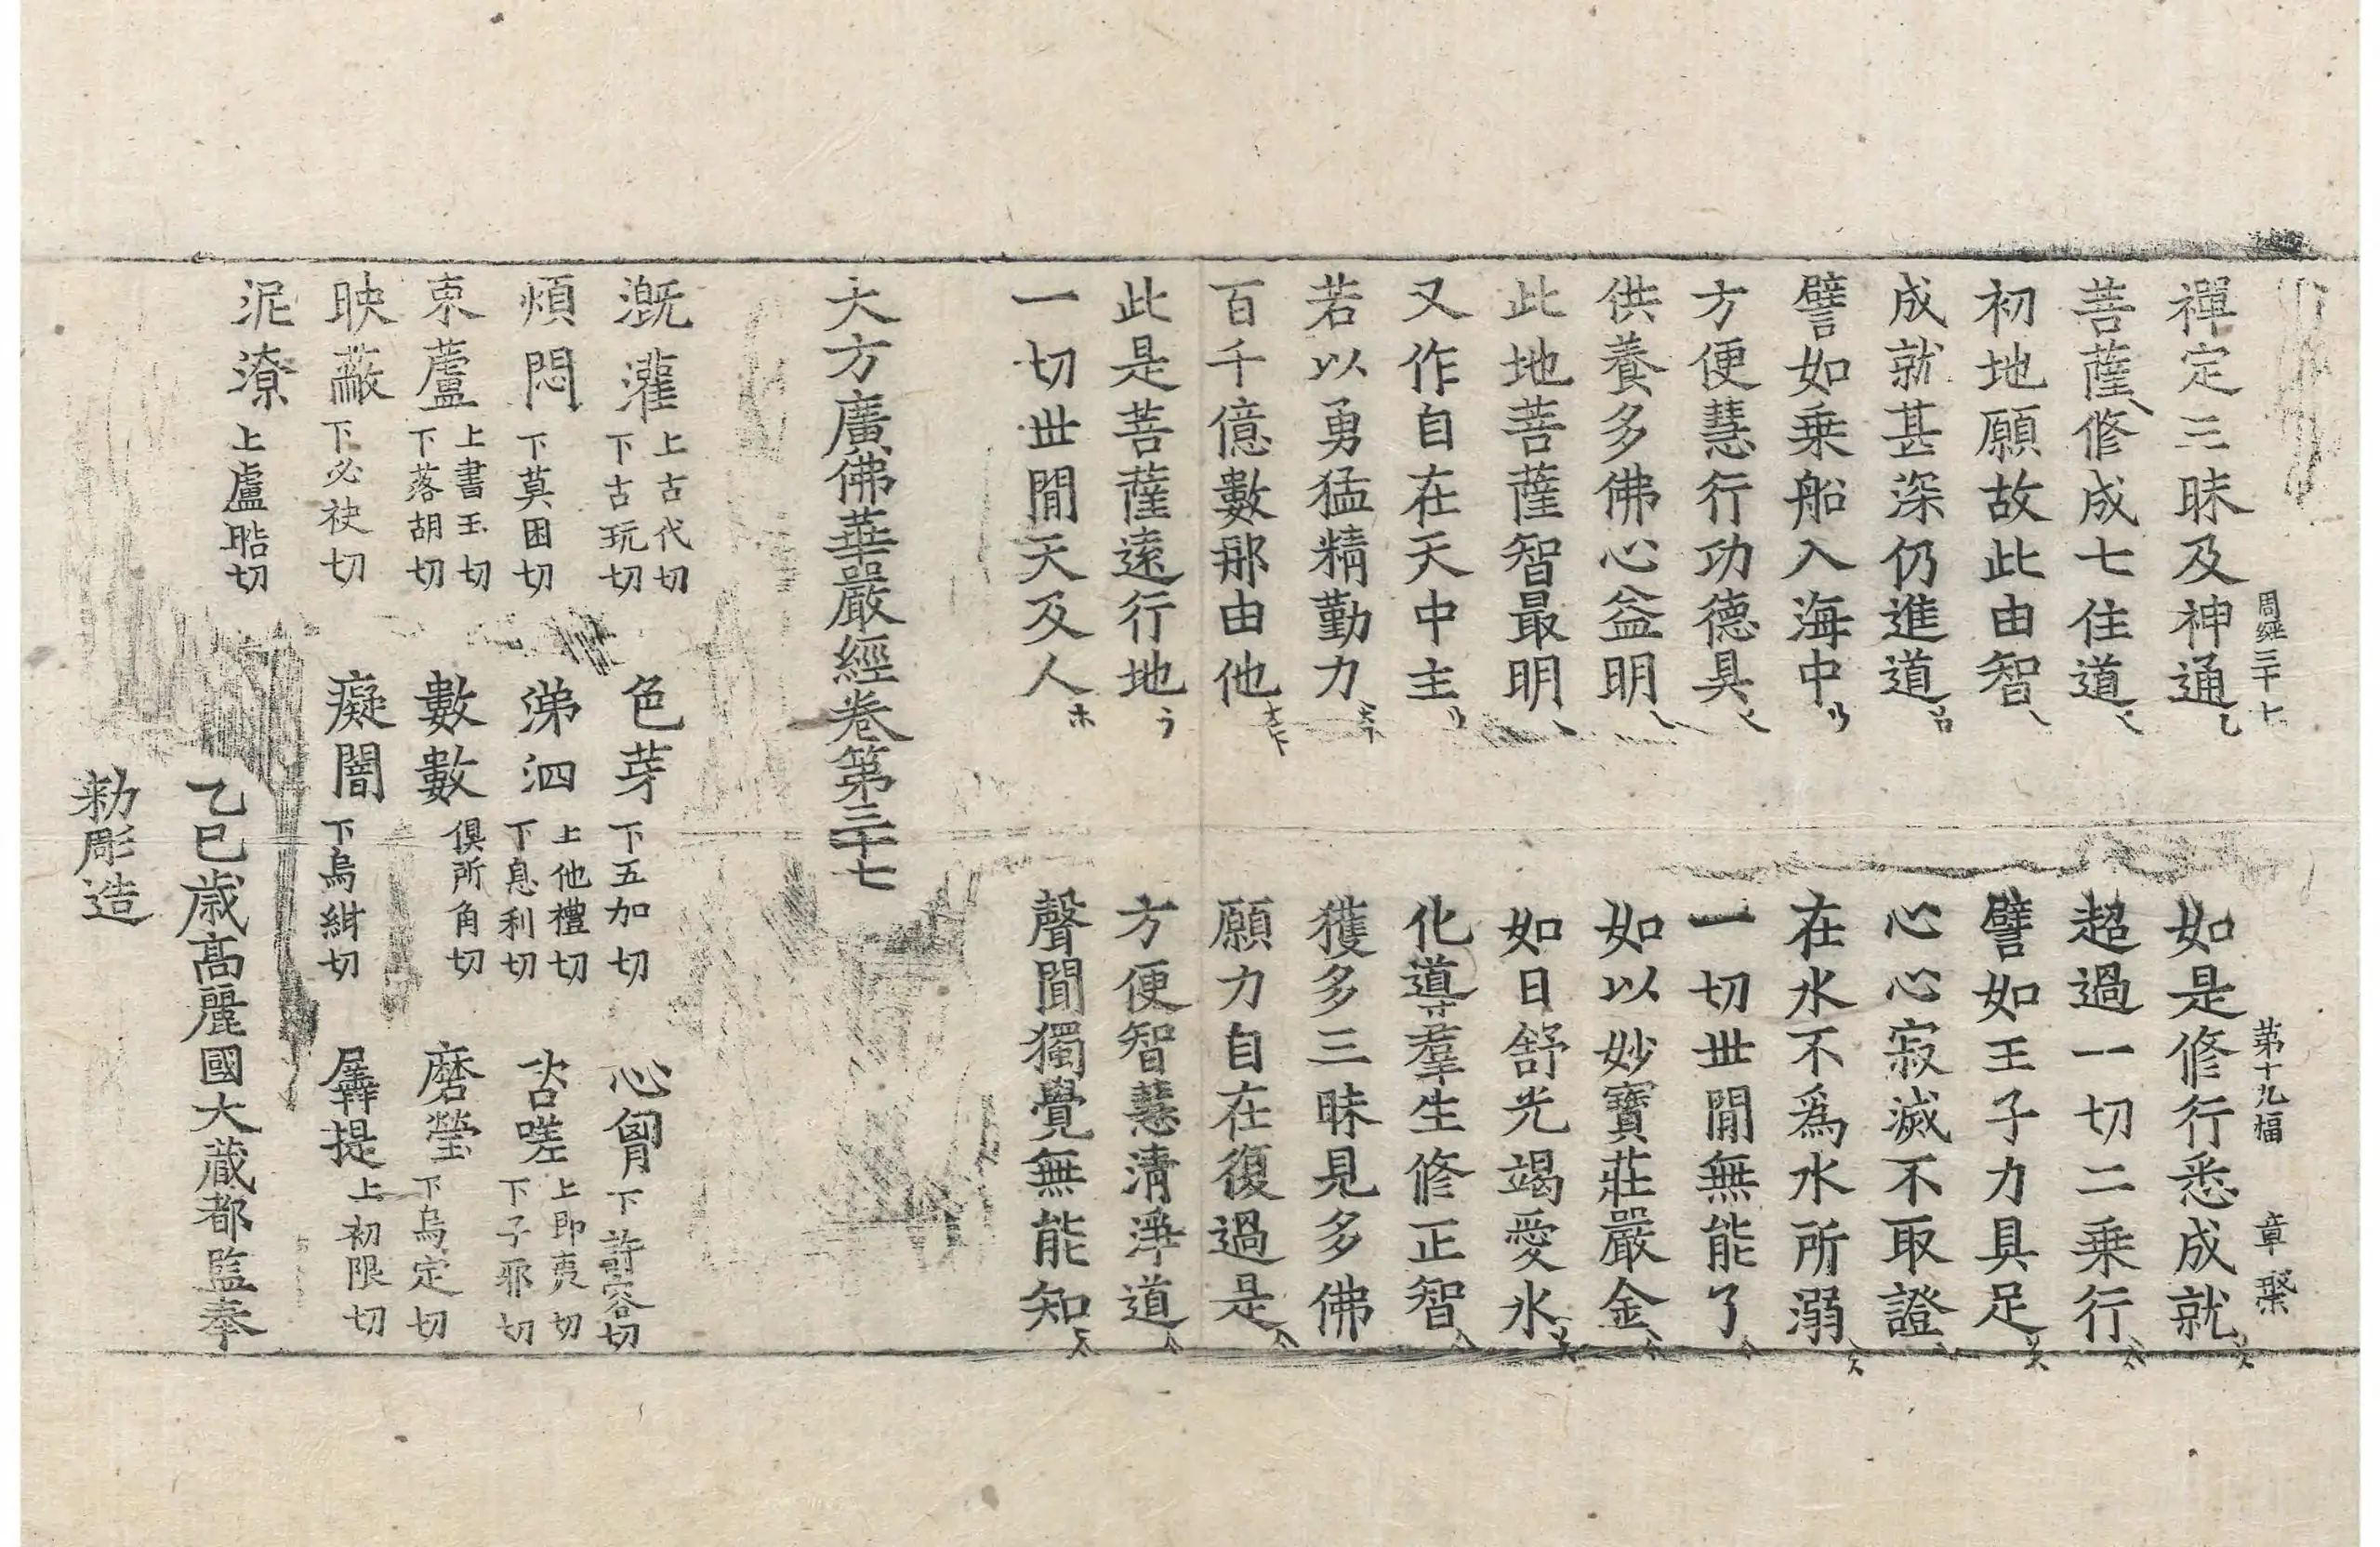 周經三十七　第十九幅　章槃
禪定三昧及神通　如是修行悉成就
菩薩修成七住道　超過一切二乗行
初地願故此由智　譬如王子力具足
成就甚深仍進道　心心寂滅不取證
譬如乗船入海中　在水不爲水所溺
方便慧行功德具　一切世閒無能了
供養多佛心益明　如以妙寶莊嚴金
此地菩薩智最明　如日舒光竭愛水
又作自在天中主　化導羣生修正智
若以勇猛精勤力　獲多三昧見多佛
百千億數那由他　願力自在復過是
此是菩薩遠行地　方便智慧清淨道
一切世間天及人　聲聞獨覺無能知
大方廣佛華嚴經卷第三十七
漑灌　上古代切　下古玩切　色芽　下五加切　心胷　下許容切
煩悶　下莫困切　涕泗　上他禮切　下息利切　呇嗟　上即夷切　下子耶切
束蘆　上書玉切　下落胡切　數數　俱所角切　磨瑩　下烏定切
映蔽　下必袂切　癡闇　下烏紺切　羼提　上初限切
泥潦　上盧晧切
乙巳歳髙麗國大藏都監奉
勅彫造